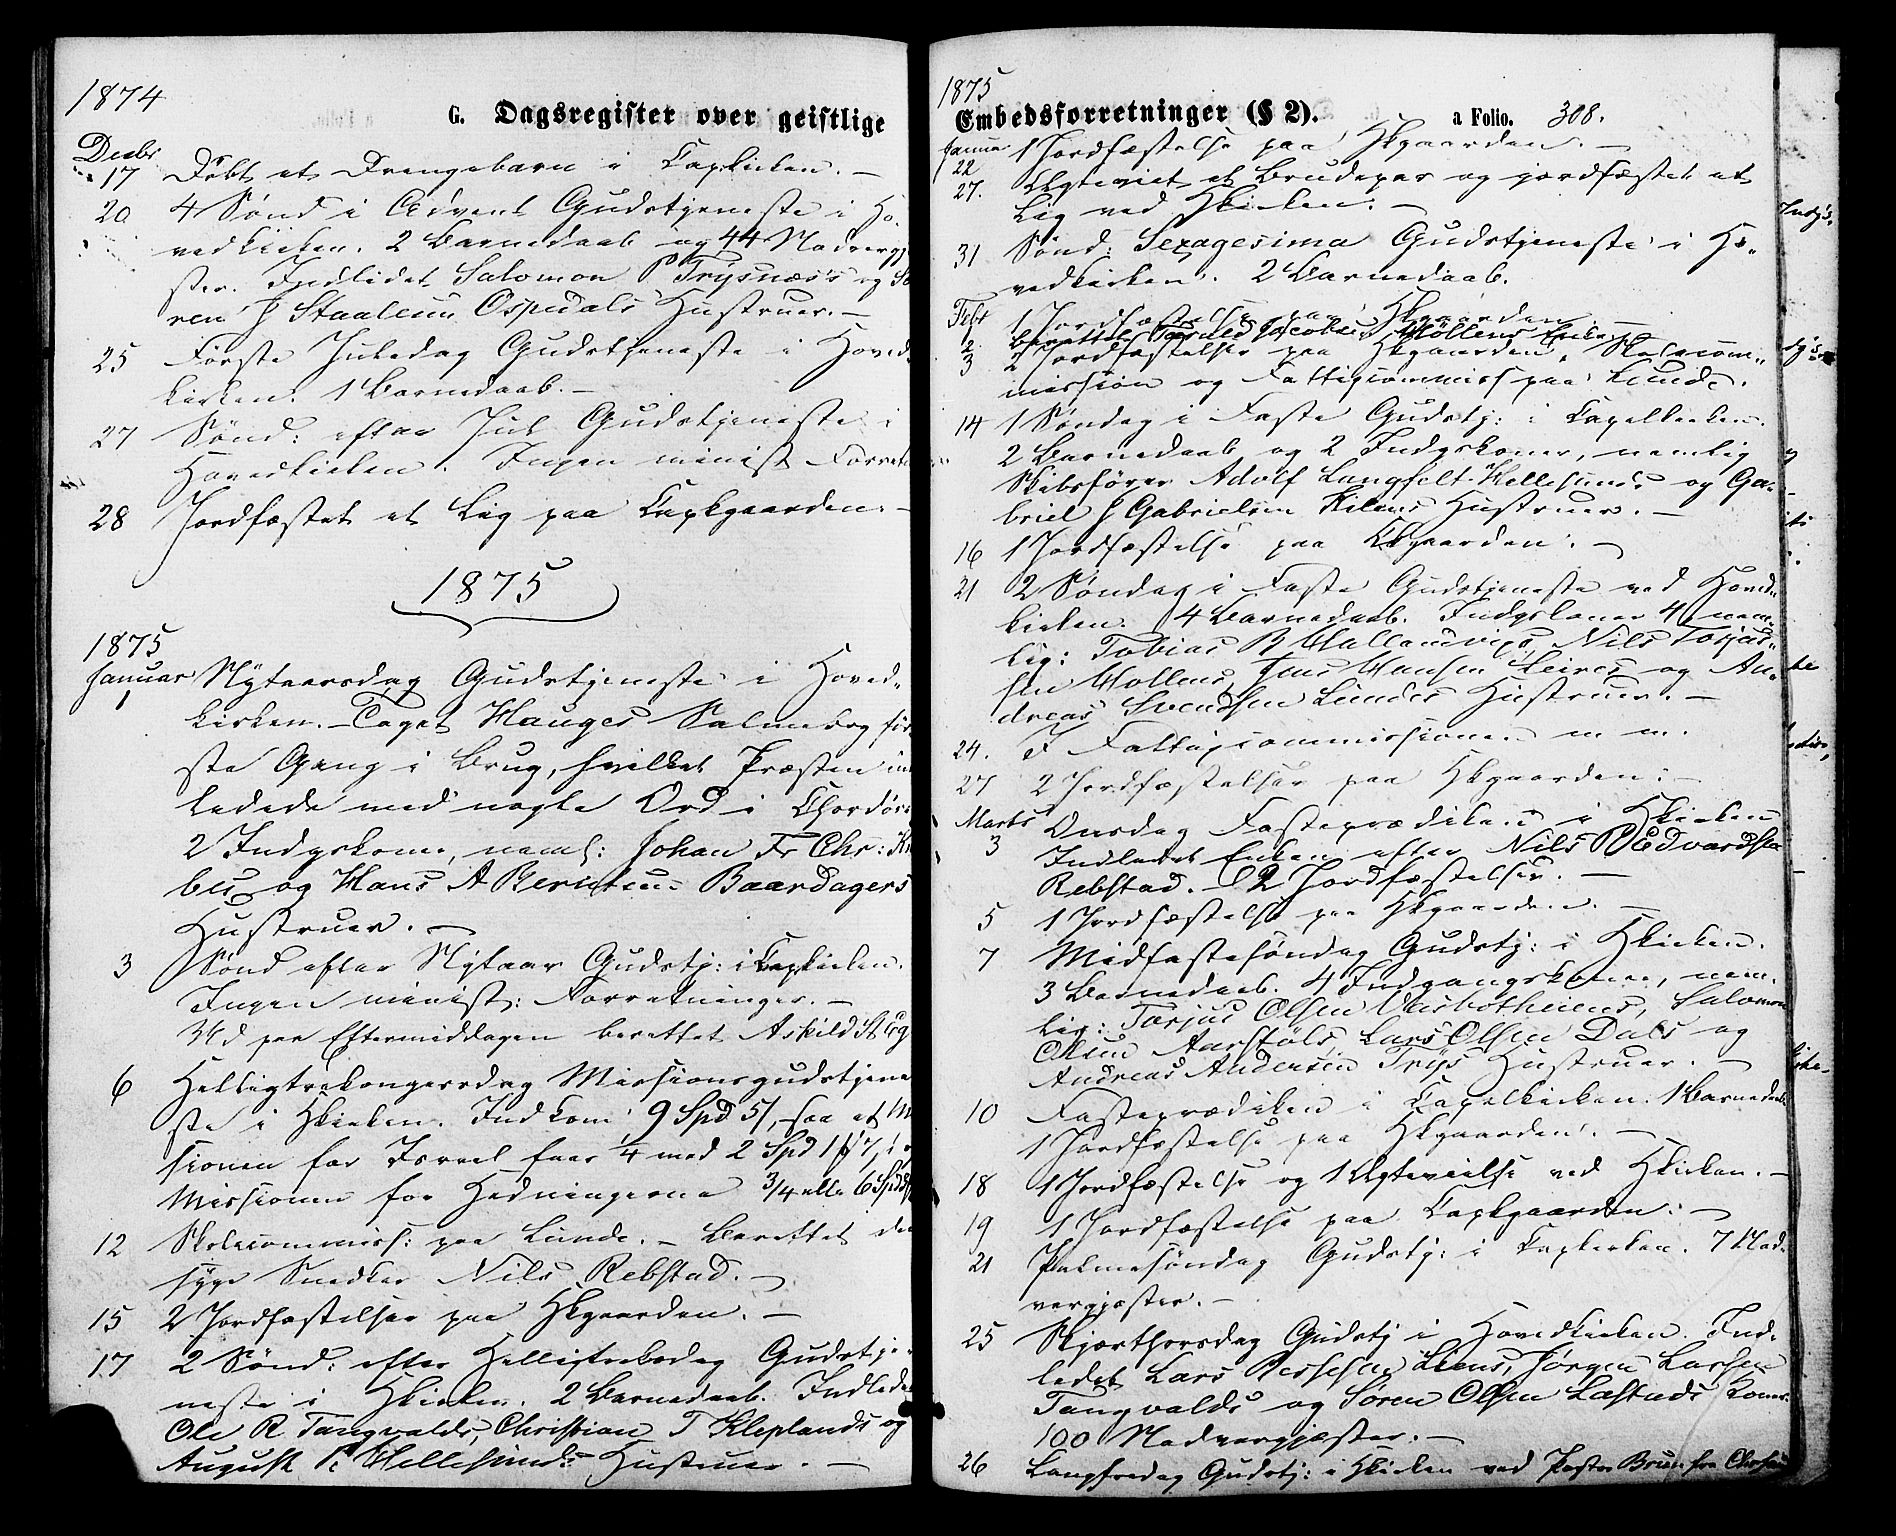 1874
G. Dagsregister over geistlige
Decbr
17 Døbt et Drengebarn i Capkirken. —
20 4 Sønd i Advent Gudstjeneste i Ho-
vedkirken. 2 Barnedaab og 44 Nadvergjæ-
ster. Indledet Salomon P Trysnæs's og Sø-
ren J Staalesen Ospedals Hustruer. —
25 Første Juledag Gudstjeneste i Hoved-
kirken. 1 Barnedaab. —
27 Sønd: efter Jul Gudstjeneste i
Hovedkirken. Ingen minist Forret
28 Jordfæstet et Lig paa Capkgaarden. —
1875
1875
Januar
1 Nytaarsdag Gudstjeneste i Hoved-
kirken. — Toges Hauges Salmebog før-
ste Gang i Brug, hvilket Præsten ind
ledede med nogle Ord i Chordøren
2 Indgskoner, neml: Johan Fr Chr:
og Hans A Berntsen Baardagers
Hustruer. —
3 Sønd efter Nytaar Gudstj: i Capkirken.
Ingen minist: Forretninger. —
paa Eftermiddagen berettet Askild
6 Helligtrekongersdag Missionsgudstjene
ste i Hkirken. Indkom 9 Spd 5/, saa at Mi
sionen for Israel faar 1/4 med 2 Spd 1
Missionen for Hedningerne 3/4 eller 6 Spd
12 Skolecommiss: paa Lunde. — Berettet den
syge Snedker Nils Rebstad. —
15 2 Jordfæstelser paa Hkgaarden. —
17 2 Sønd: efter Helligtrekdag Gudstje-
neste i Hkirken. 2 Barnedaab. Indledet
Ole R Tangvalds, Christian T Kleplands og
August P. Hellesunds Hustruer. —
1875
Embedsforretninger (§ 2).
a Folio. 308.
Januar
22 1 Jordfæstelse paa Hkgaarden. —
27. Ægteviet et Brudepar og jordfæstet et
Lig ved Hkirken. —
31 Sønd: Sexagesima Gudstjeneste i Ho-
vedkirken. 2 Barnedaab.
Febr
2 1 Jordfæstelse paa Hkgaarden. —
berettet Jacobsen Möllens Enke
3 2 Jordfæstelser paa Hkgaarden. Skolecom-
mission og Fattigcommiss paa Lunde.
14 1 Søndag i Faste Gudstj: i Capelkirken.
2 Barnedaab og 2 Indgskoner, nemlig
Skibsfører Adolf Langfelt Hellesunds og Ga-
briel J Gabrielsen Kilens Hustruer. —
16 1 Jordfæstelse paa Ckgaarden. —
21 2 Søndag i Faste Gudstjeneste ved Hoved-
kirken. 4 Barnedaab. Indgskoner 4 nem-
lig: Tobias B Nils Torjus-
sen Mollens, Jens Hansen og An-
dreas Svendsen Lundes Hustruer. —
24. I Fattigcommissionen m m.
27 2 Jordfæstelser paa Hkgaarden. —
Marts
3 Onsdag Fasteprædiken i Hkirken
Indledet Enken efter Nils B Edvardsen
Rebstad. — 2 Jordfæstelser. —
5 1 Jordfæstelse paa Hkgaarden. —
7 Midfastesøndag Gudstj: i Hkirken.
3 Barnedaab. 4 Indgangskoner, nem-
lig: Torjus Olsen Salomon
Olsen Aarstöls, Lars Olsen Dals og
Andreas Andersen Trys Hustruer. —
10 Fasteprædiken i Capelkirken. 1 Barnedaab
1 Jordfæstelse paa Hkgaarden. —
18 1 Jordfæstelse og 1 Ægtevielse ved Hkirken. —
19 1 Jordfæstelse paa Capkgaarden: —
21 Palmesøndag Gudstj: i Capkirken. 7 Nad-
vergjæster. —
25 Skjærthorsdag Gudstj i Hovedkirken. Ind-
ledet Lars Liens, Jørgen Larsen
Tangvalds og Søren Olsen Lastads Koner
100 Nadvergjæster. —
26 Langfredag Gudstj: i Hkirken ved Pastor Bruun fra Chrsand